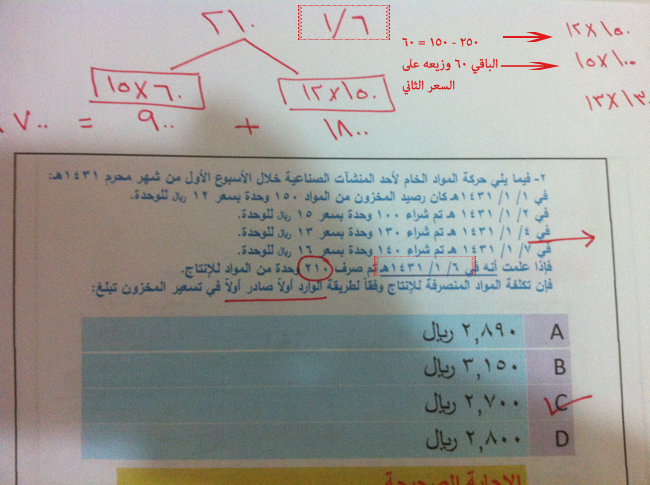 ٢١٠
١/٦
١٢×١٥٠
٢٥٠ - ١٥٠ = ٦٠
١٥×١٠٠
الباقي ٦٠ وزيعه على
السعر الثاني
١٣×١٣٠
١٥×٦٠
١٢×١٥٠
٧٠٠ = ٩٠٠ + ١٨٠٠
٢- فيما يلي حركة المواد الخام لأحد المنشآت الصناعية خلال الأسبوع الأول من شهر محرم ١٤٣١هـ:
في ١/ ١/ ١٤٣١ هـ كان رصيد المخزون من المواد ١٥٠ وحدة بسعر ١٢ ريال للوحدة.
في ٢/ ١/ ١٤٣١ هـ تم شراء ١٠٠ وحدة بسعر ١٥ ريال للوحدة.
في ٤/ ١/ ١٤٣١ هـ تم شراء ١٣٠ وحدة بسعر ١٣ ريال للوحدة.
في ٧/ ١/ ١٤٣١ هـ تم شراء ١٤٠ وحدة بسعر ١٦ ريال للوحدة.
فإذا علمت أنه في ٦/ ١/ ١٤٣١هـ تم صرف ٢١٠ وحدة من المواد للإنتاج.
فإن تكلفة المواد المنصرفة للإنتاج وفقاً لطريقة الوارد أولاً صادر أولاً في تسعير المخزون تبلغ:
A ٢,٨٩٠ ريال
B ٣,١٥٠ ريال
C ٢,٧٠٠ ريال
D ٢,٨٠٠ ريال
الإجابة الصحيحة